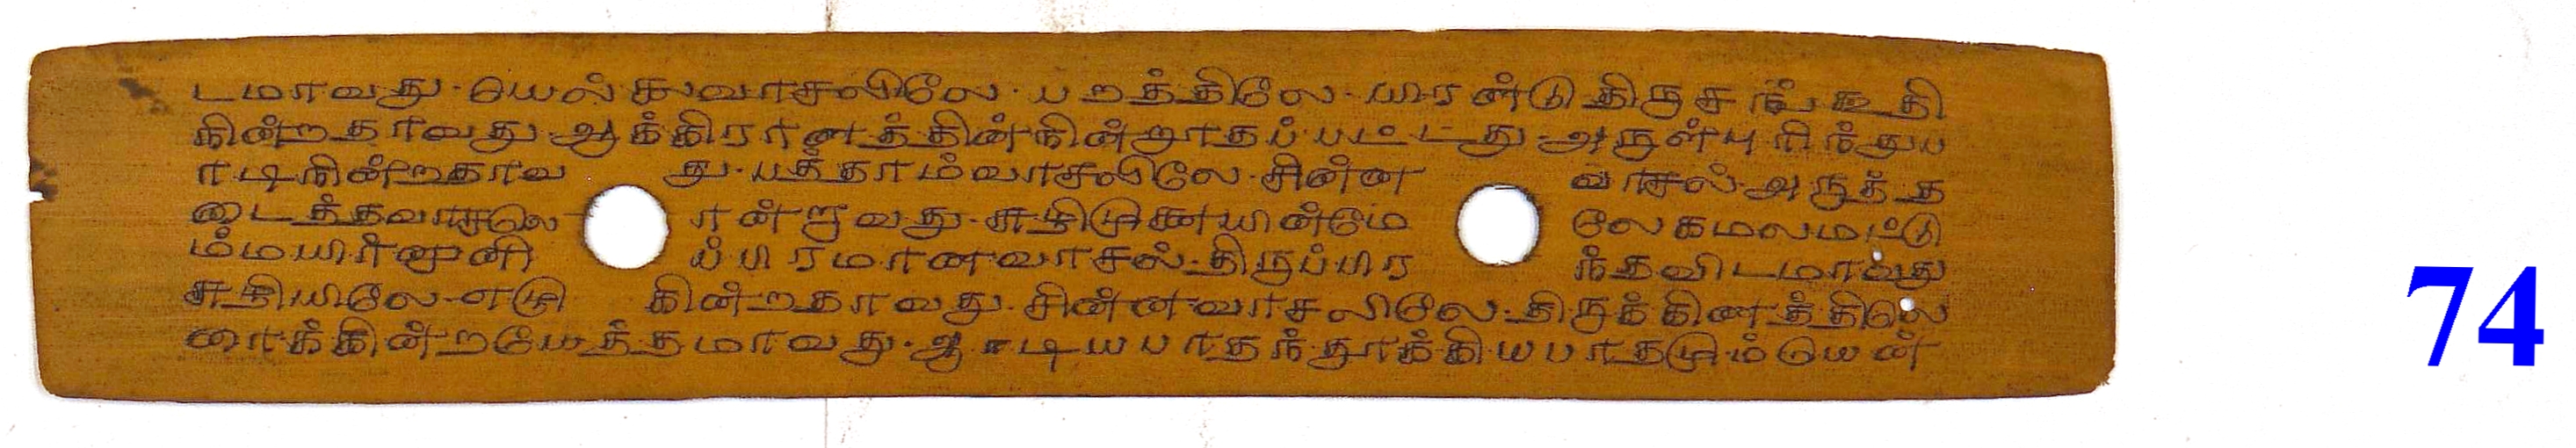 டமாவது - யெல்குவாசலிலே - பறத்திலே - யிரண்டு திருச
கின்றதாவது ஆக்கிரானத்தின் நின்றாதப்பட்டது - அருள்புரிந்துய
ாடிநின்றதாவது - பத்தாம்வாசலிலே - சின்ன வாசல் - அருத்த
டைத்தவாசலெ ான்றுவது - சுழிமுனையின்மே லேகமலமட்டு
ம்மயிர்னுனி ப்பிரமானவாசல் - திருப்பிர ந்தவிடமாவது
சுதியிலே - எடு கின்றதாவது - சின்னவாசலிலே - திருக்கிணத்திலெ
ாக்கின்றயேத்தமாவது - ஆ டியபாதந்தூக்கியபாதமும்யென்
74